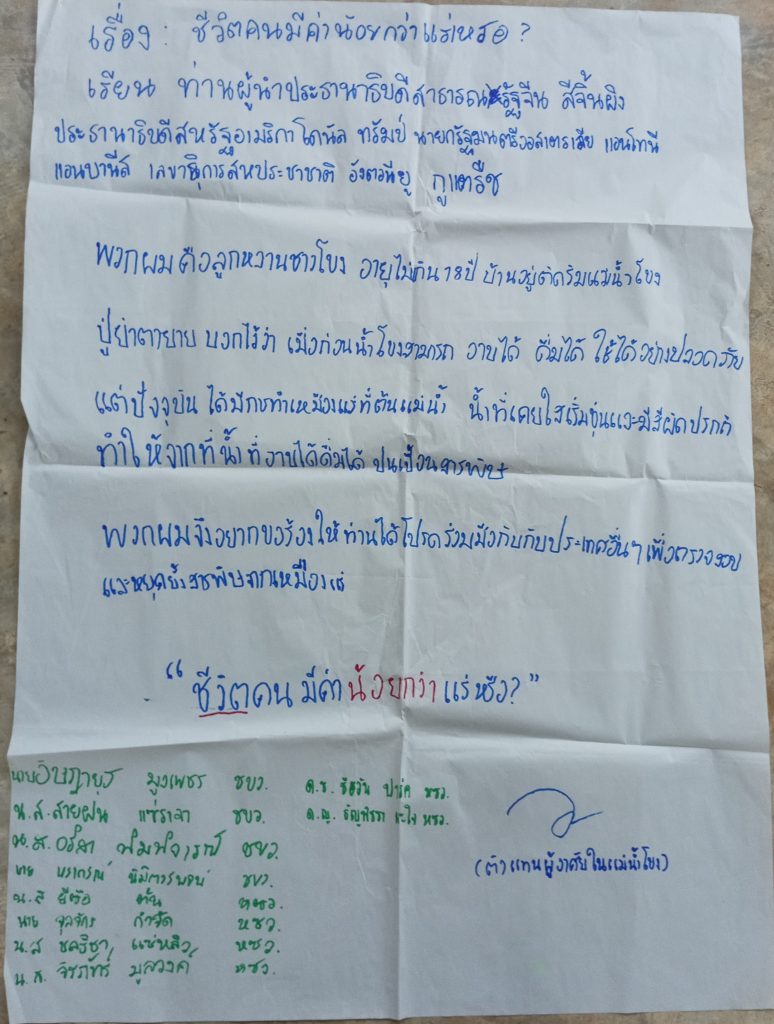 เรื่อง : ชีวิตคนมีค่าน้อยกว่าแร่เหรอ?
เรียน ท่านผู้นำประธานาธิบดีสาธารณรัฐจีน สีจิ้นผิง
ประธานาธิบดีสหรัฐอเมริกา โดนัล ทรัมป์ นายกรัฐมนตรีออสเตรเลีย แอนโทนี
แอนบานีส เลขาธิการสหประชาชาติ อังตอนียู กูแตรึช
พวกผมคือลูกหลานชาวโขง อายุไม่เกิน 18 ปี บ้านอยู่ติดริมแม่น้ำโขง
ปู่ย่าตายาย บอกไว้ว่า เมื่อก่อนน้ำโขงสามารถ อาบได้ ดื่มได้ ใช้ได้อย่างปลอดภัย
แต่ปัจจุบัน ได้มีการทำเหมืองแร่ที่ต้นแม่น้ำ น้ำที่เคยใสเริ่มขุ่นและมีสีผิดปรกติ
ทำให้จากที่น้ำที่อาบได้ดื่มได้ ปนเปื้อนสารพิษ
พวกผมจึงอยากขอร้องให้ท่านได้โปรดร่วมมือกับกับประเทศอื่นๆ เพื่อตรวจสอบ
และหยุดยั้งสารพิษจากเหมืองแร่
“ชีวิตคน มีค่า น้อยกว่า แร่ หรือ?”
นาย มูงเพชร ชขว.
ด.ช. ปาร์ค ชขว.
น.ส.สายฝน แซ่ ชขว.
ด.ญ. หชว.
น.ส. อริสา ชขว.
นาย ชขว.
น.ส หชว.
นาย จุลจักร กำจัด หชว.
น.ส ชลธิชา แซ่หลิว หชว.
น.ส. มูลวงค์ หชว.
(ตัวแทนผู้อาศัยในแม่น้ำโขง)